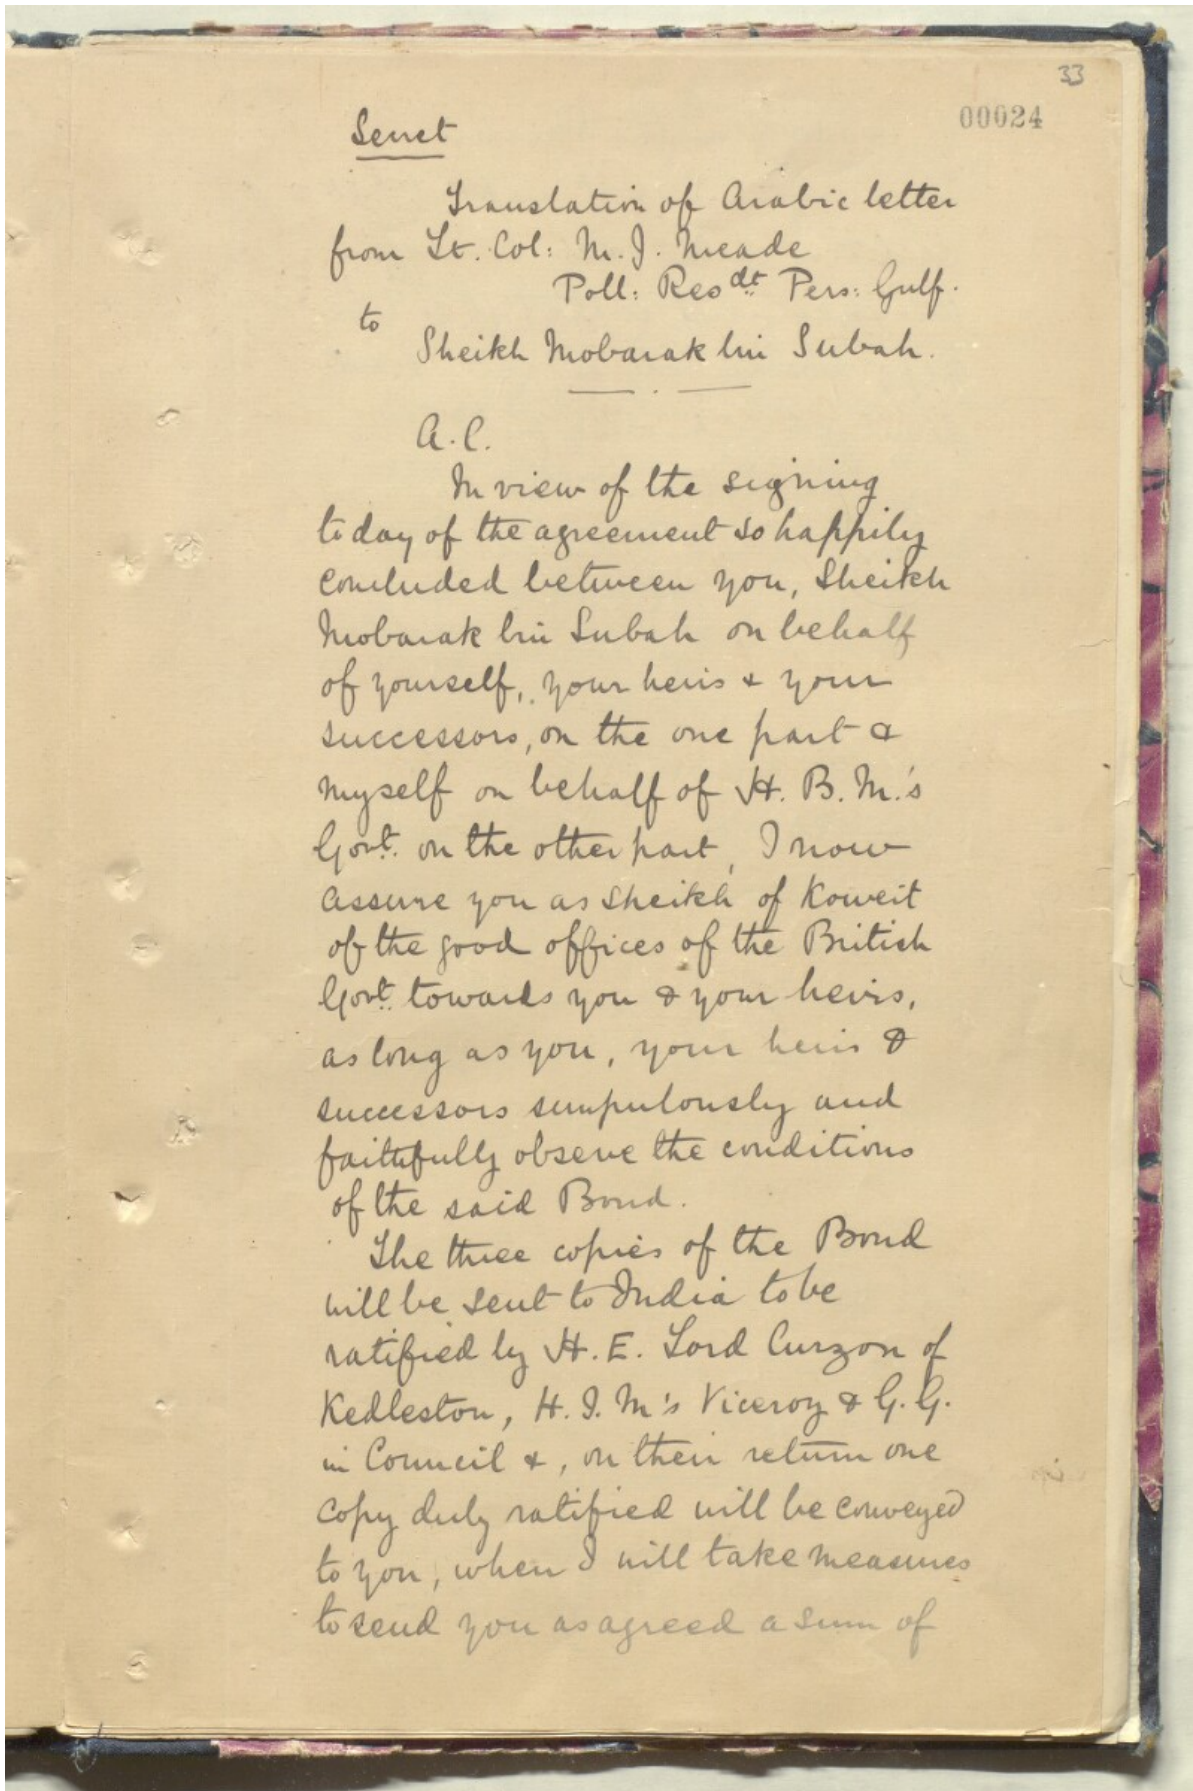 33
00024
Secret
Translation of Arabic letter
from Lt. Col: M. J. Meade
Poll: Resdt Pers: Gulf.
to
Sheikh Mobarak bin Subah.
A. C.
In view of the signing
today of the agreement so happily
concluded between you, Sheikh
Mobarak bin Subah on behalf
of yourself, your heirs & your
successors, on the one part &
myself on behalf of H. B. M.'s
Govt. on the other part, I now
assure you as Sheikh of Koweit
of the good offices of the British
Govt. towards you & your heirs,
as long as you, your heirs &
successors scrupulously and
faithfully observe the conditions
of the said Bond.
The three copies of the Bond
will be sent to India to be
ratified by H. E. Lord Curzon of
Kedleston, H. I. M's Viceroy & G. G.
in Council &, on their return one
copy duly ratified will be conveyed
to you, when I will take measures
to send you as agreed a sum of